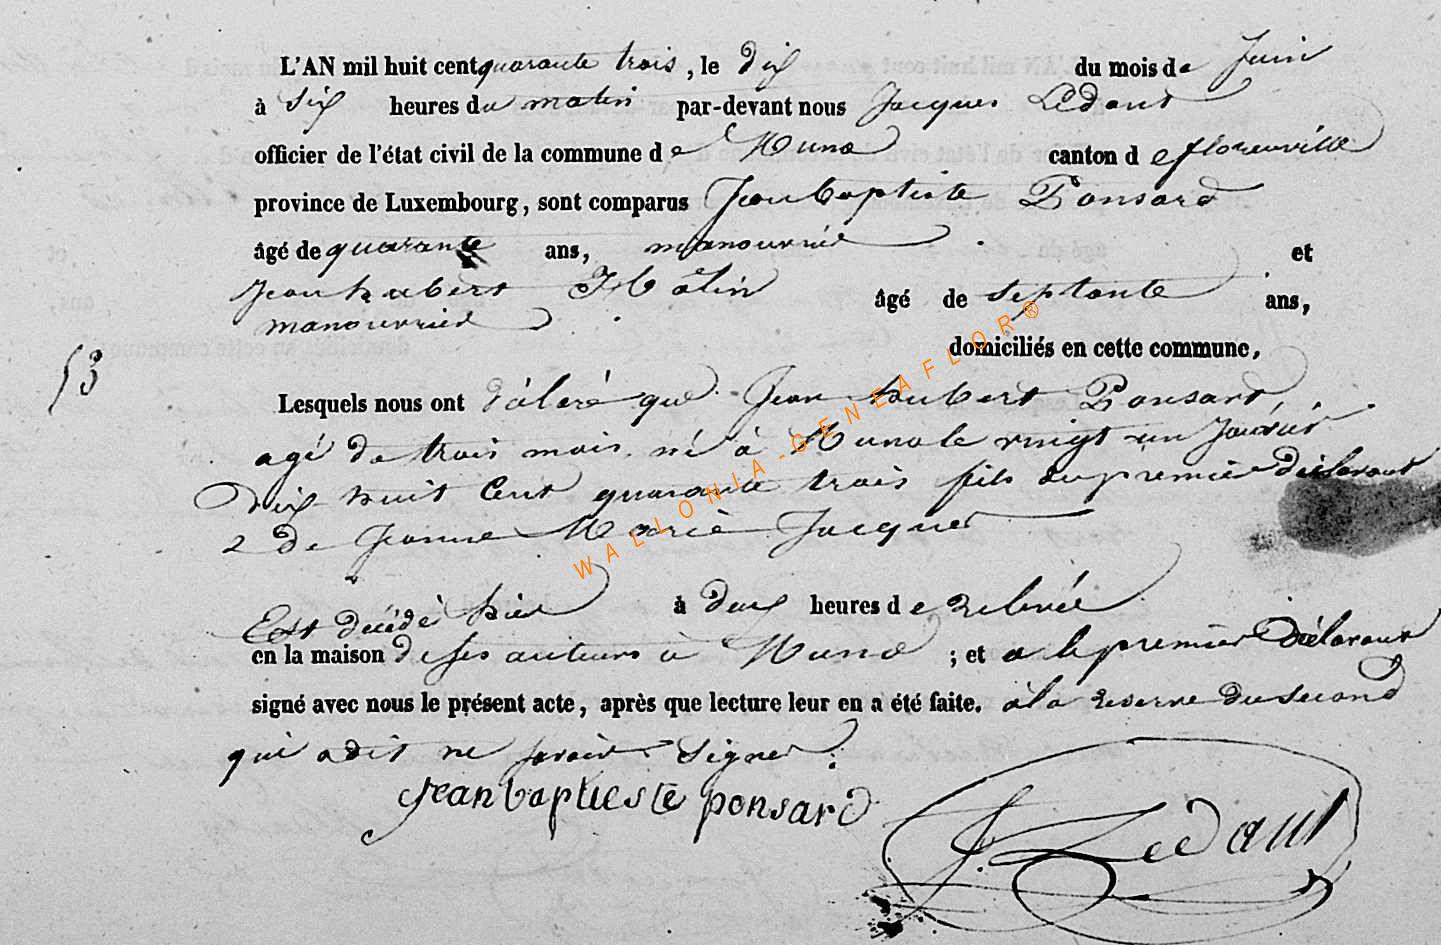 L'AN mil huit cent quarante trois, le dix du mois de Juin
à six heures du matin par-devant nous Jacques Lédant
officier de l'état civil de la commune de Muno canton de florenville
province de Luxembourg, sont comparus Jean baptiste Ponsard
âgé de quarante ans, manouvrier et
Jean hubert âgé de septante ans,
manouvrier
domiciliés en cette commune,
53
Lesquels nous ont déclaré que Jean hubert Ponsard
agé de trois mois né à Muno le vingt un Janvier
Dix huit Cent quarante trois fils du premier déclarant
& de Jeanne Marie Jacques
Est décédé hier à deux heures de relevée
en la maison de ses auteurs à Muno ; et a le premier Déclarant
signé avec nous le présent acte, après que lecture leur en a été faite. à la reserve du second
qui a dit ne savoir signer.
Jean baptieste ponsard
J. Lédant
WALLONIA-GENEAFLOR®